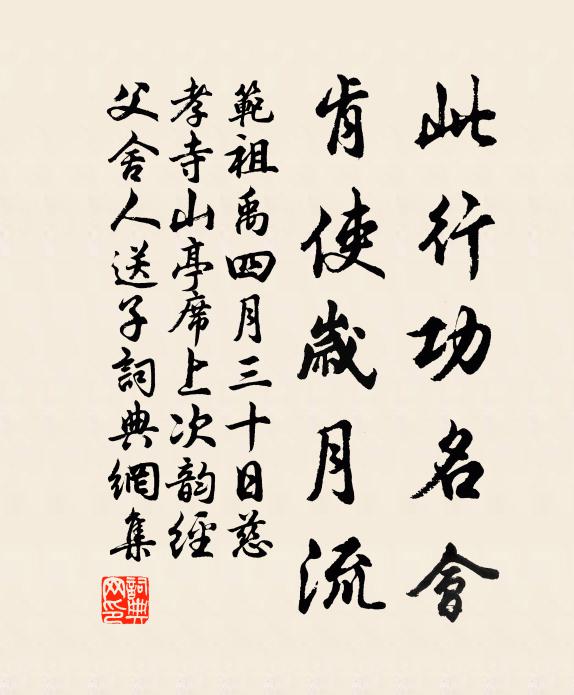 此行功名會
肯使歲月流
範祖禹四月三十日慈
孝寺山亭席上次韵經
父舍人送子詞典網集
詞典网印